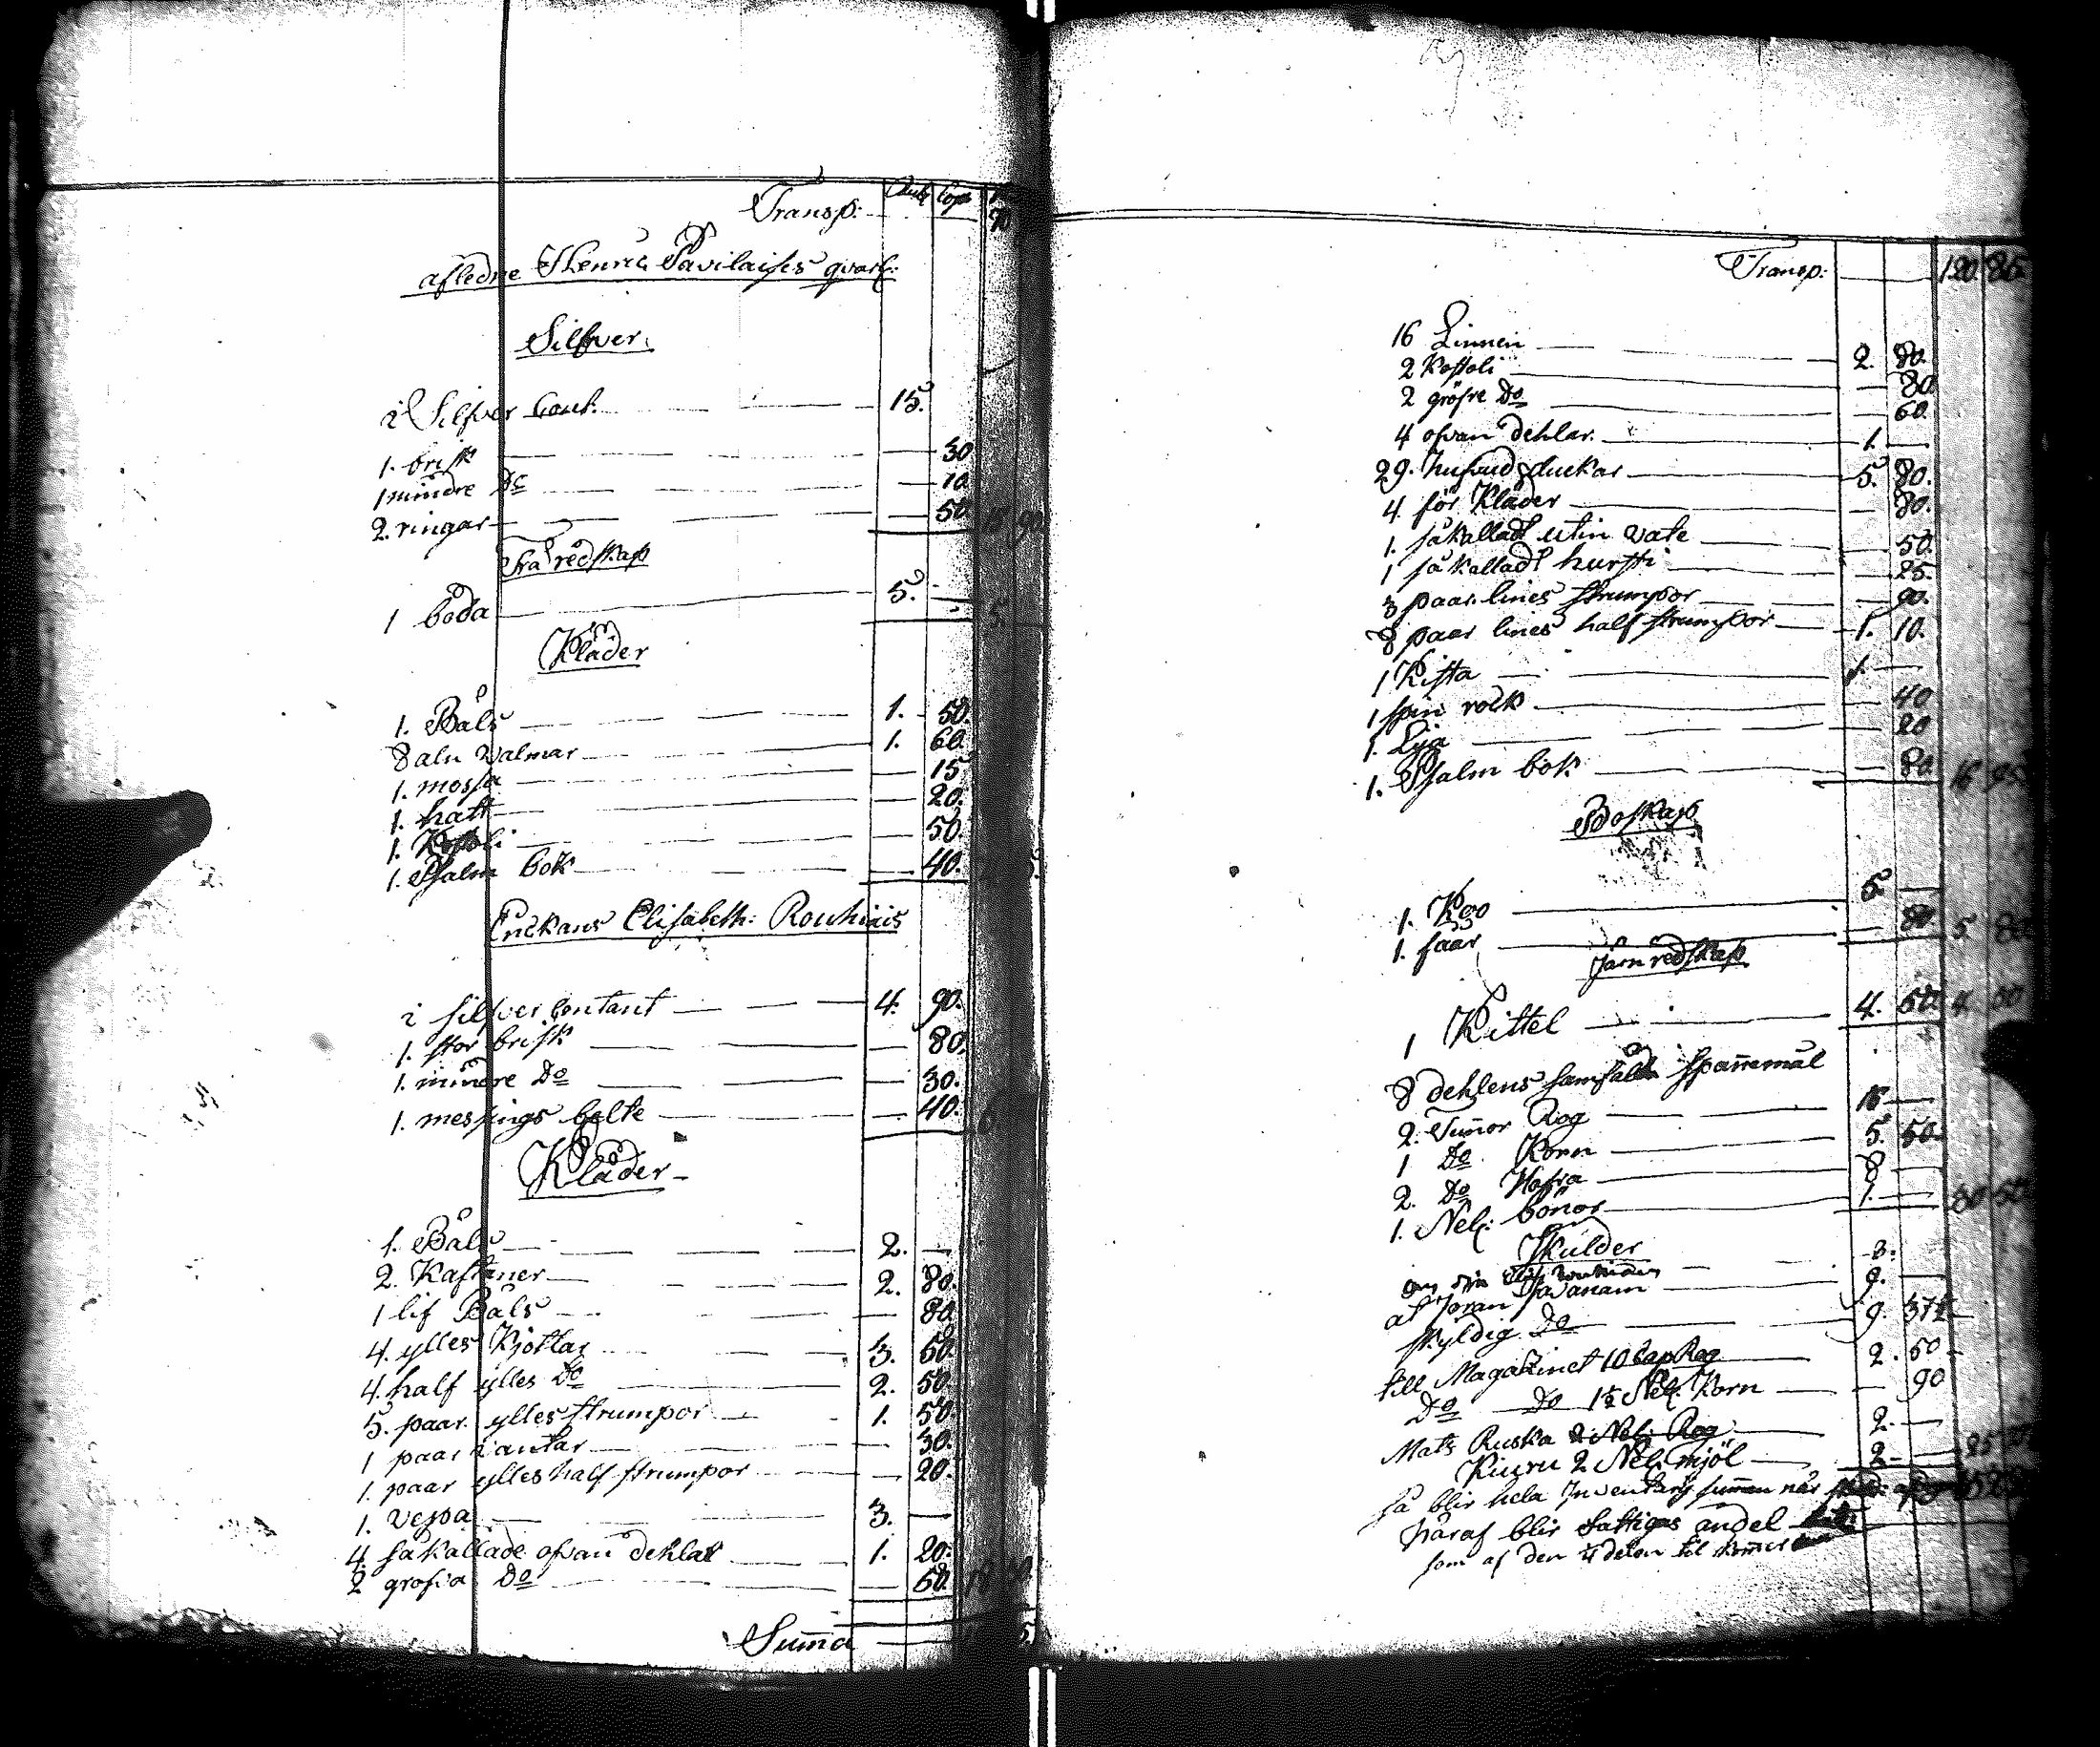 Transp:
afledne Henric Pavilaises qvarl:
Silfver
i Silfver Cont. 15.
1. brisk 30
1 mindre Do 10
2. ringar 50. 15 90
Trä redskap
1 boda 5. 5.
Kläder
1. Påls 1. 50.
8 aln valmar 1. 60.
1. mössa 15
1. hatt 20.
1. Kostoli 50
1. Psalm bok 40.
Enckans Elisabeth: Rouhiais
i silfver Contant 4. 90.
1. stor brisk 80.
1. mindre Do 30.
1. messings belte 40.
Kläder
1. Påls 2.
2. Kaftaner 2. 80.
1 lif Påls 80.
4. ylles Kjortlar 3. 60.
4. half ylles Do 2. 50.
5. paar ylles strumpor 1. 50.
1 paar vantar 30.
1. paar ylles half strumpor 20.
1. vespa 3.
4. så kallade ofvan dehlar 1. 20.
2 grofva Do 50. 18
Suma
Transp: 120. 85.
16 Linnen 2. 80.
2 Kostoli 80.
2 gröfre Do 60.
4 ofvan dehlar 1.
29. hufvud duckar 5. 80.
4 för Kläder 80.
1. så kallad utin vate 50.
1 så kallad hursti 25.
3 paar lines strumpor 90.
8 paar lines half strumpor 1. 10.
1 Kista 1.
1 spin rock 40
1. Lya 20
1. Psalm bok 80 16 95
Boskap
1. Koo 5.
1. faar 80 5 80
Järn redskap
1 Kittel 4. 50. 4. 50
8 dehlens samfälda Spanemål
2. Tunor Rog 16
1 Do Korn 5. 50.
2. Do Hafra 8
1. Nel: bönor 1. 30 50
Skulder
af Jöran 9.
skyldig Do 9. 37½
till Magazinet 10 Cap Rog 2. 50
Do Do 1½ Nel: Korn 90
Mats Ruska 2 Nel: Rog 2.
Kiuru 2 Nel: mjöl 2 25
så blir hela Inventarij suman när
häraf blir fattigas andel
som af den ¼ delen til komer